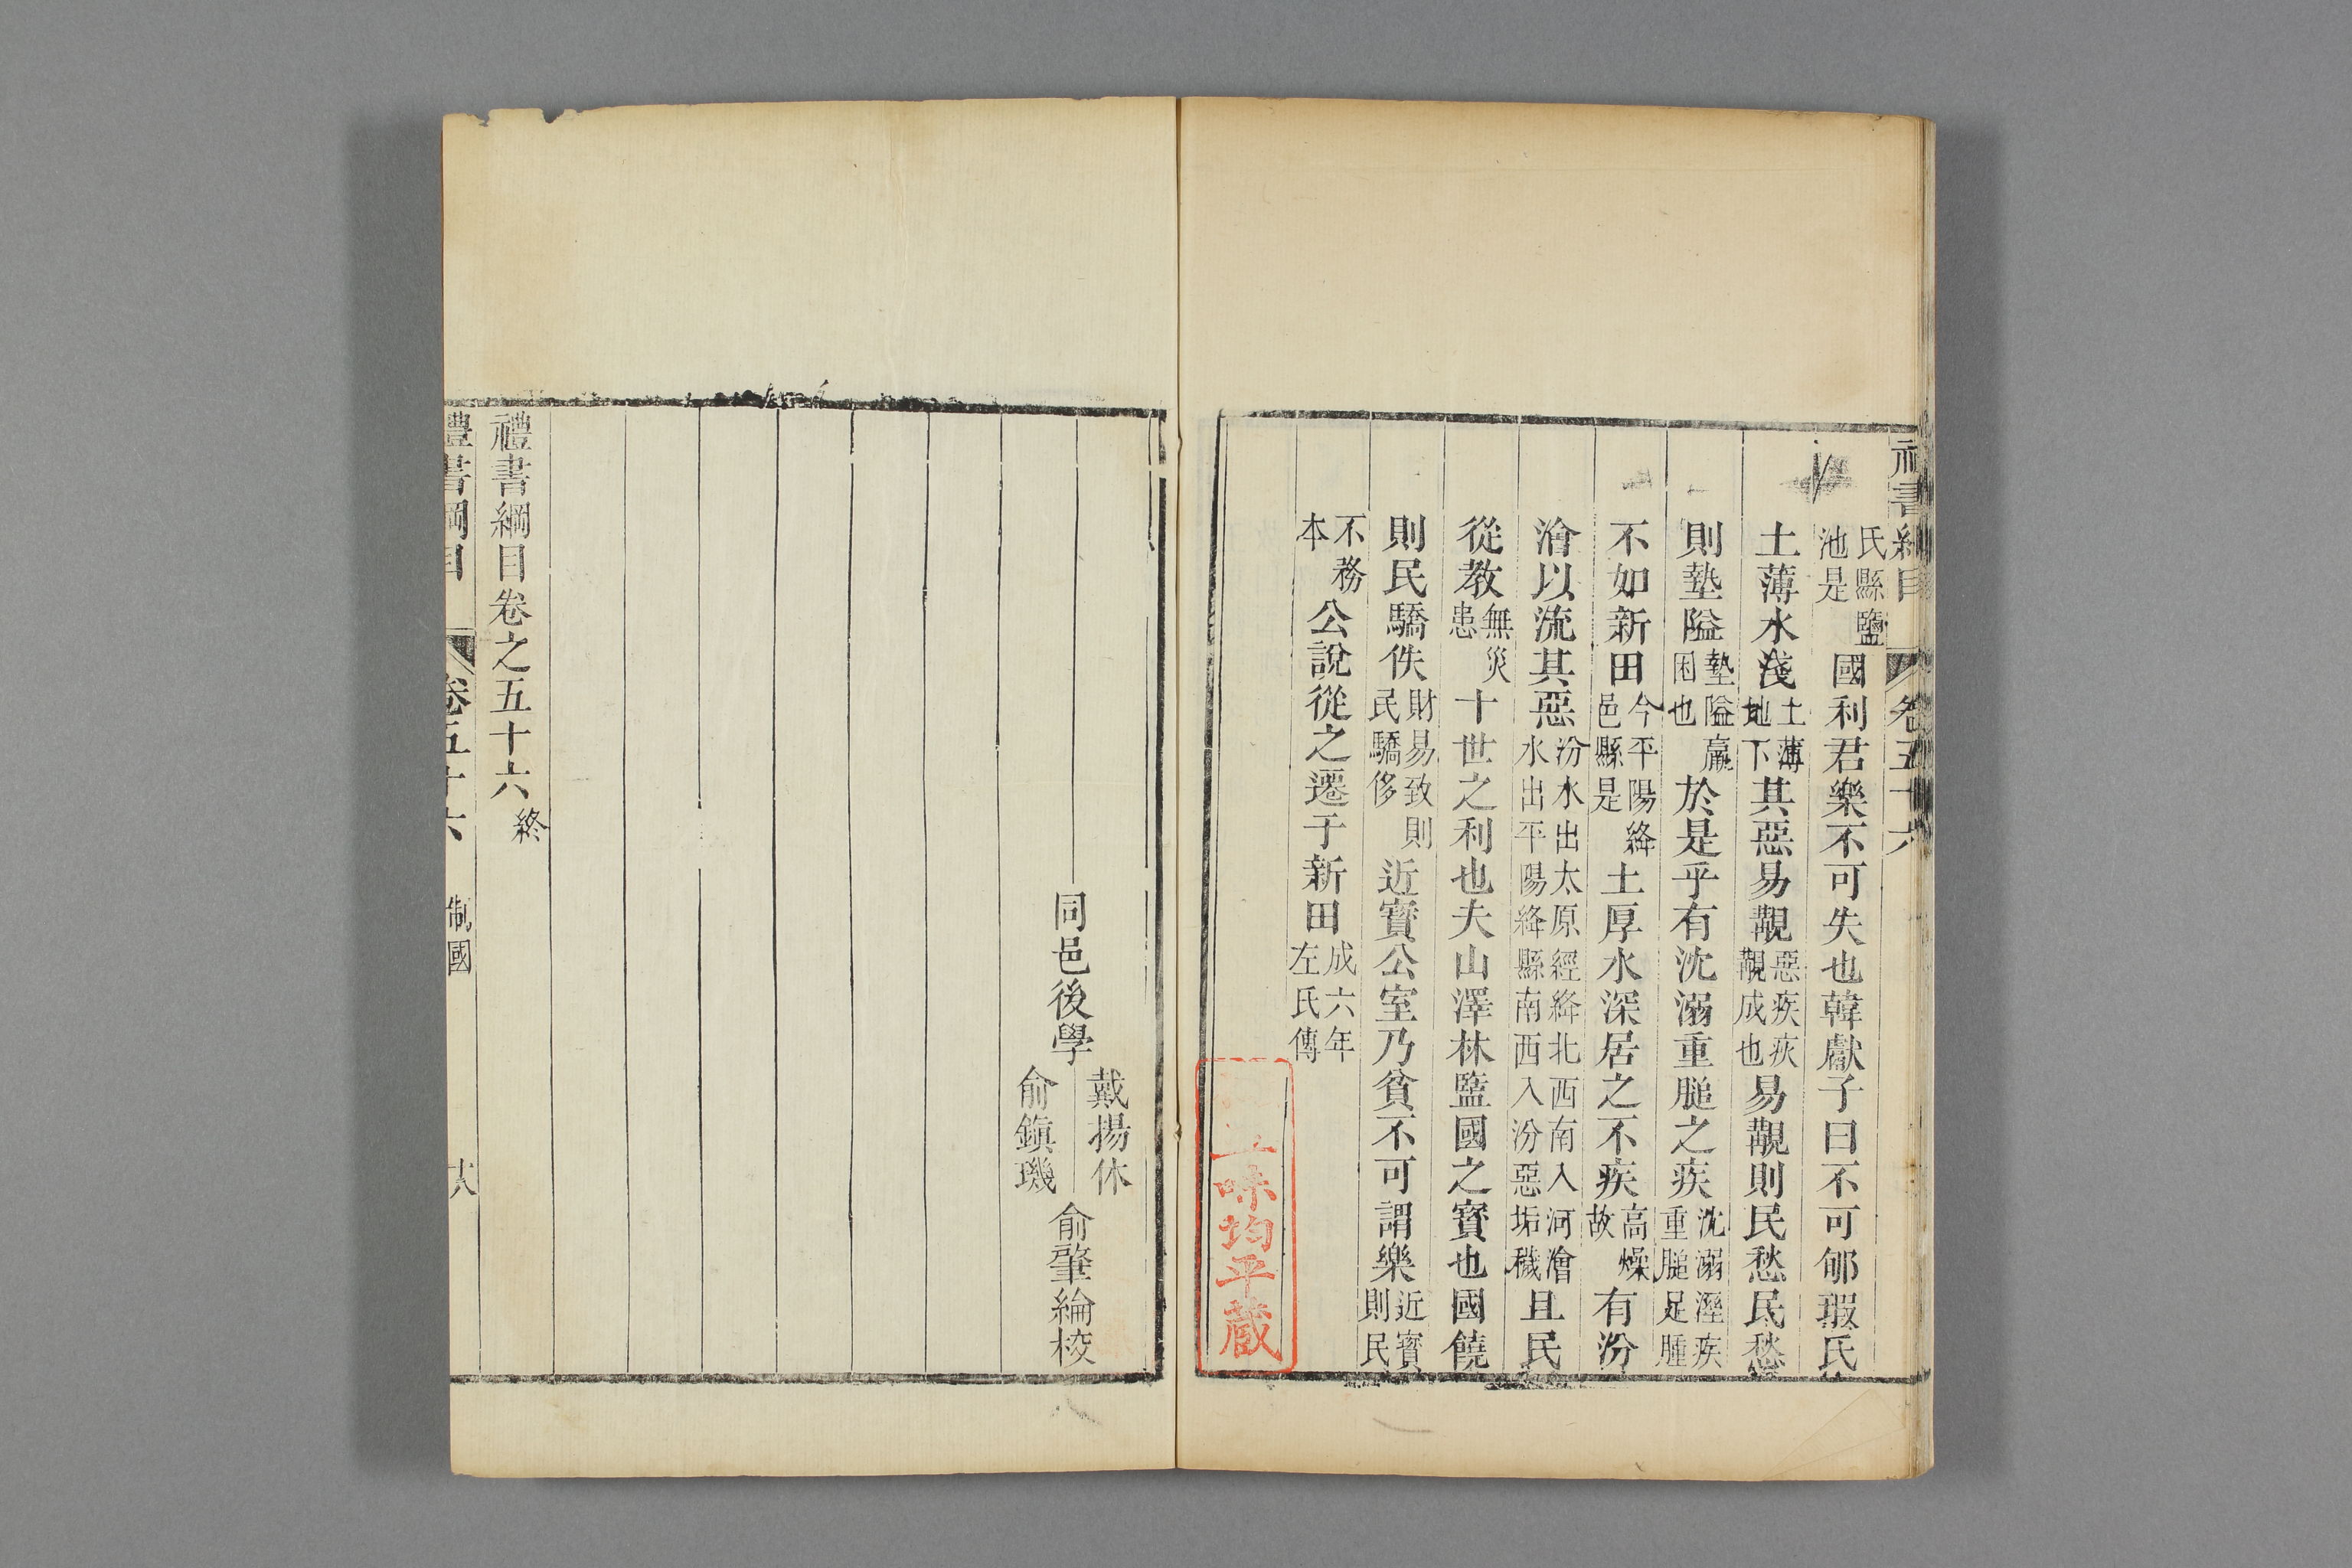 禮書綱目
卷五十六
氏縣鹽池是國利君樂不可失也韓獻子曰不可郇瑕氏
土薄水淺土薄地下其惡易覯惡疾疢覯成也易覯則民愁民愁
則墊隘墊隘羸困也於是乎有沈溺重膇之疾沈溺溼疾重膇足腫
不如新田今平陽絳邑縣是土厚水深居之不疾高燥故有汾
澮以流其惡汾水出太原經絳北西南入河澮水出平陽絳縣南西入汾惡垢穢且民
從教無災患十世之利也夫山澤林盬國之寳也國饒
則民驕佚財易致則民驕侈近寳公室乃貧不可謂樂近寳則民
不務本公說從之遷于新田成六年左氏傳
味均平藏
同邑後學
戴揚休
俞鎮璣
俞肇綸校
禮書綱目卷之五十六終
禮書綱目
卷五十六
制國